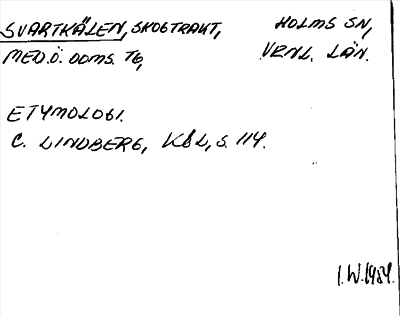 SVARTKÄLEN, SKOGTRAKT, HOLMS SN,
MED.Ö. DOMS. TG, VRNL. LÄN.
ETYMOLOGI.
C. LINDBERG, KÖL, S. 114.
I.W. 1984.